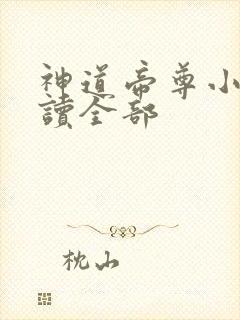 神道帝尊小
讀全部
枕山